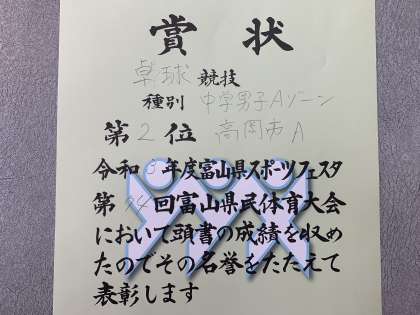 賞状
卓球 競技
種別 中学男子Aゾーン
第 2 位 高岡市A
令和 年度富山県スポーツフェスタ
第74回富山県民体育大会
において頭書の成績を収め
たのでその名誉をたたえて
表彰します